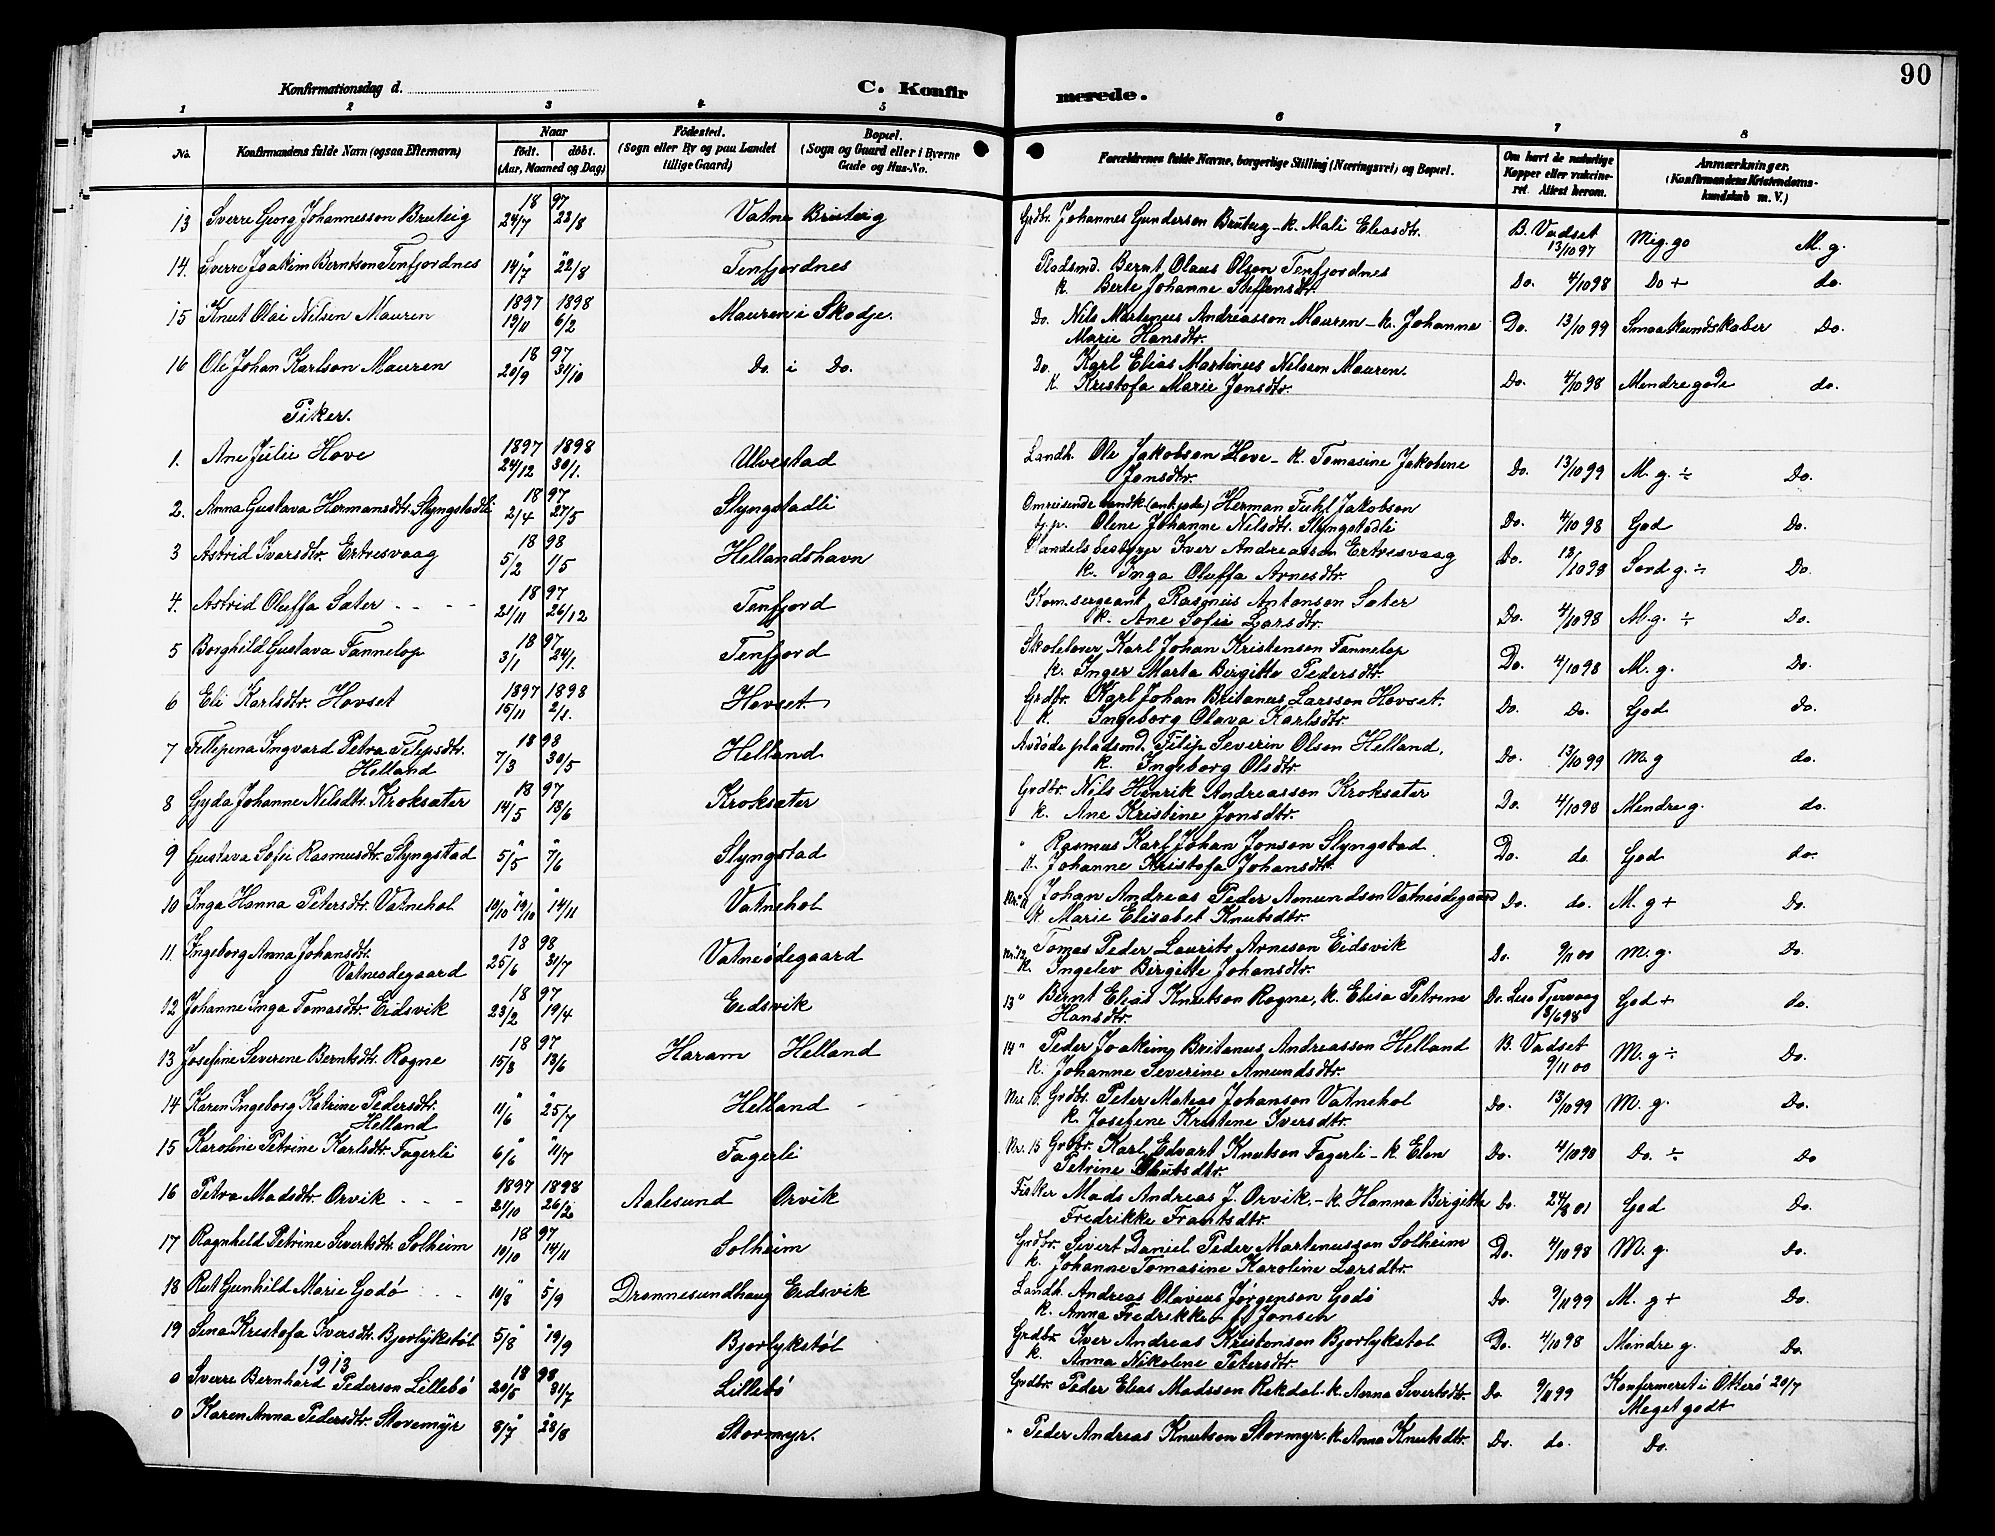 90
Konfirmationsdag d.
C. Konfirmerede.
1 2 3 4 5 6 7 8
No.
Konfirmandens fulde Navn (ogsaa Efternavn)
Naar
födt. döbt.
(Aar, Maaned og Dag)
Födested.
(Sogn eller By og paa Landet
tillige Gaard)
Bopæl.
(Sogn og Gaard eller i Byerne
Gade og Hus-No.
Forældrenes fulde Navne, borgerlige Stilling (Næringsvei) og Bopæl.
Om havt de naturlige
Kopper eller vaccine-
ret. Attest herom.
Anmærkninger.
(Konfirmandens Kristendoms-
kundskab m. V.)
13 Sverre Georg Johannesson Bruteig 1897 24/7 23/8 Vatne Bruteig Grdbr. Johannes Gunderson Bruteig - k. Mali Eliasdtr. B. Vadset 13/10 97 Mig. go M. g.
14. Sverre Joakim Berntson Tenfjordnes " 14/7 " 22/8 Tenfjordnes Pladsmd. Bernt Olaus Olson Tenfjordnes
k. Berte Johanne Steffensdtr. Do. 4/10 98 Do + do.
15 Knut Olai Nilsen Mauren 1897 19/11 1898 6/2 Mauren i Skodje. Do. Nils Martenus Andreasson Mauren - k. Johanna
Marie Hansdtr. Do. 13/10 99 Smaa kundskaber Do.
16 Ole Johan Karlson Mauren 1897 20/9 31/10 Do. i Do. Do. Karl Elias Martinus Nilsson Mauren.
k. Kristofa Marie Jonsdtr. Do. 4/10 98 Mendre gode do.
Piker.
1. Ane Julie Hove 1897 24/12 1898 30/1. Ulvestad Landh. Ole Jakobson Hove - k. Tomasine Jakobine
Jonsdtr. Do. 13/10 99 M. g. ÷ Do.
2. Anna Gustava Hermansdtr. Slyngstadli 1897 2/4 27/5 Slyngstadli Omreisende Herman Jakobson
Olene Johanne Nilsdtr. Slyngstadli Do. 4/10 98 God Do.
3 Astrid Iversdtr. Ertresvaag 1898 5/2 1/5 Hellandshavn Handelsbestyrer Iver Andreasson Ertresvaag
k. Inga Oluffa Arnesdtr. Do. 13/10 98 Særd g. ÷ Do.
4. Astrid Oluffa Sæter 1897 21/11 26/12 Tenfjord Kom. sergeant Rasmus Antonson Sæter
k. Ane Sofie Larsdtr. Do. 4/10 98 M. g. ÷ Do.
5 Borghild Gustava Fannelop 1897 3/1 24/1. Tenfjord Skolelærer Karl Johan Kristenson Fannelop
k. Inger Marta Birgitte Pedersdtr. Do. 4/10 98 M. g. Do.
6 Eli Karlsdtr. Hovset 1897 15/11 1898 2/1. Hovset Grdbr. Karl Johan Britanus Larsson Hovset.
k. Ingeborg Olava Karlsdtr. Do. Do. God do.
7 Fillepena Ingvard Petra Filipsdtr.
Helland 1898 7/3 30/5 Helland Avdøde pladsmd. Filip Severin Olson Helland,
k. Ingeborg Olsdtr. Do. 13/10 99 M. g do.
8 Gyda Johanne Nilsdtr. Kroksæter 1897 14/5 18/6 Kroksæter Grdbr. Nils Henrik Andreasson Kroksæter
k. Ane Kristine Jonsdtr. Do. 4/10 98 Mendre g. do.
9 Gustava Sofie Rasmusdtr. Slyngstad " 5/5 " 7/6 Slyngstad " Rasmus Karl Johan Jonson Slyngstad
k. Johanne Kristofa Johansdtr. Do. do. God do.
10 Inga Hanna Petersdtr. Vatnehol 19/10 " 19/10 " 14/11 Vatnehol Nr. 11 Johan Andreas Peder Amundson Vatneødegaard
k. Marie Elisabet Knutsdtr. Do. do. M. g + Do.
11. Ingeborg Anna Johansdtr.
Vatneødegaard 1898 25/6 31/7 Vatneødegaard Nr. 12 Tomas Peder Laurits Arneson Eidsvik
k. Ingelev Birgitte Johansdtr. Do. 9/11 00 M. g. Do.
12 Johanne Inga Tomasdtr. Eidsvik 1897 23/2 19/4 Eidsvik 13 " Bernt Elias Knutson Rogne, k. Elisa Petrine
Hansdtr. Do. Tjervaag 18/6 98 God + do.
13 Josefine Severene Berntsdtr. Rogne 1897 15/3 13/6 Haram Helland 14 " Peder Joakim Britanus Andreasson Helland
k. Johanne Severine Amundsdtr. B. Vadset 9/11 00 M. g ÷ Do.
14 Karen Ingeborg Katrine Pedersdtr.
Helland " 11/6 " 25/7 Helland Grdbr. Peter Mateas Johanson Vatnehol
k. Josefene Kristene Iversdtr. Do. 13/10 99 M. g. Do.
15 Karoline Petrine Karlsdtr. Fagerli " 6/6 " 11/7 Fagerli Nr. 15 Grdbr. Karl Edvart Knutson Fagerli - k. Elen
Petrine Knutsdtr. Do. 4/10 98 Do. ÷ Do
16 Petra Madsdtr. Orvik 1897 21/10 1898 26/2 Aalesund Orvik Fisker Mads Andreas J. Orvik. - k. Hanna Birgitte
Fredrikke Frantsdtr. Do. 24/8 01 God Do.
17 Ragnheld Petrine Sivertsdtr. Solheim 1897 19/10 14/11 Solheim Grdbr. Sivert Daniel Peder Martenusson Solheim
k. Johanne Tomasine Karoline Larsdtr. Do. 4/10 98 M. g. do.
18 Rut Gunhild Marie Godø " 10/8 " 5/9 Drønnesundhaug Eidsvik Landh. Andreas Olavius Jørgenson Godø
k. Anna Fredrikke f. Jonsen Do. 9/11 99 M. g + Do.
19 Sina Kristofa Iversdtr. Bjorlykstøl " 5/8 " 19/9 Bjorlykstøl Grdbr. Iver Andreas Kristenson Bjorlykstøl
k. Anna Nikoline Petersdtr. Do. 4/10 98 Mindre g. Do.
1913
0 Sverre Bernhard Pederson Lillebø 1898 20/5 31/7 Lillebø Grdbr. Peder Elias Madsson Rekdal - k. Anna Sivertsdtr. Do 9/11 99 Konfermeret i Otterø 20/7
Meget godt
0 Karen Anna Pedersdtr. Storemyr " 8/7 " 28/8 Stormyr. " Peder Andreas Knutson Stormyr. k. Anna Knutsdtr. Do. do. Do.